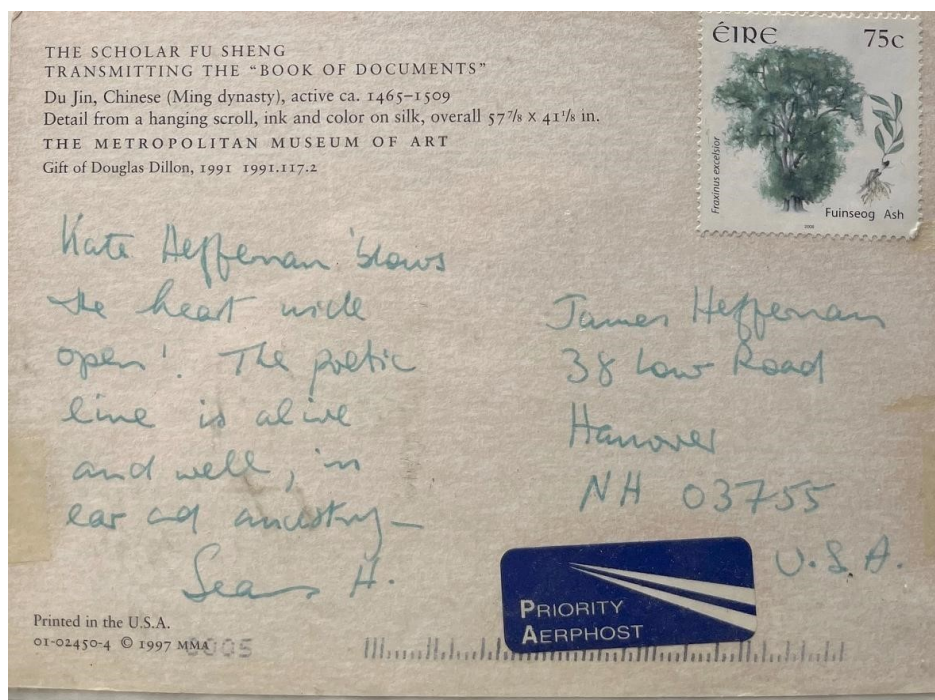 THE SCHOLAR FU SHENG
TRANSMITTING THE “BOOK OF DOCUMENTS”
Du Jin, Chinese (Ming dynasty), active ca. 1465–1509
Detail from a hanging scroll, ink and color on silk, overall 57 7/8 × 41 1/8 in.
THE METROPOLITAN MUSEUM OF ART
Gift of Douglas Dillon, 1991 1991.117.2
ÉIRE 75c
Fraxinus excelsior
Fuinseog Ash
Kate Heffernan 'blows
the heart wide
open'. The poetic
line is alive
and well, in
ear and ancestry —
Seamus H.
James Heffernan
38 Low Road
Hanover
NH 03755
U.S.A.
PRIORITY
AERPHOST
Printed in the U.S.A.
01-02450-4 © 1997 MMA
0005